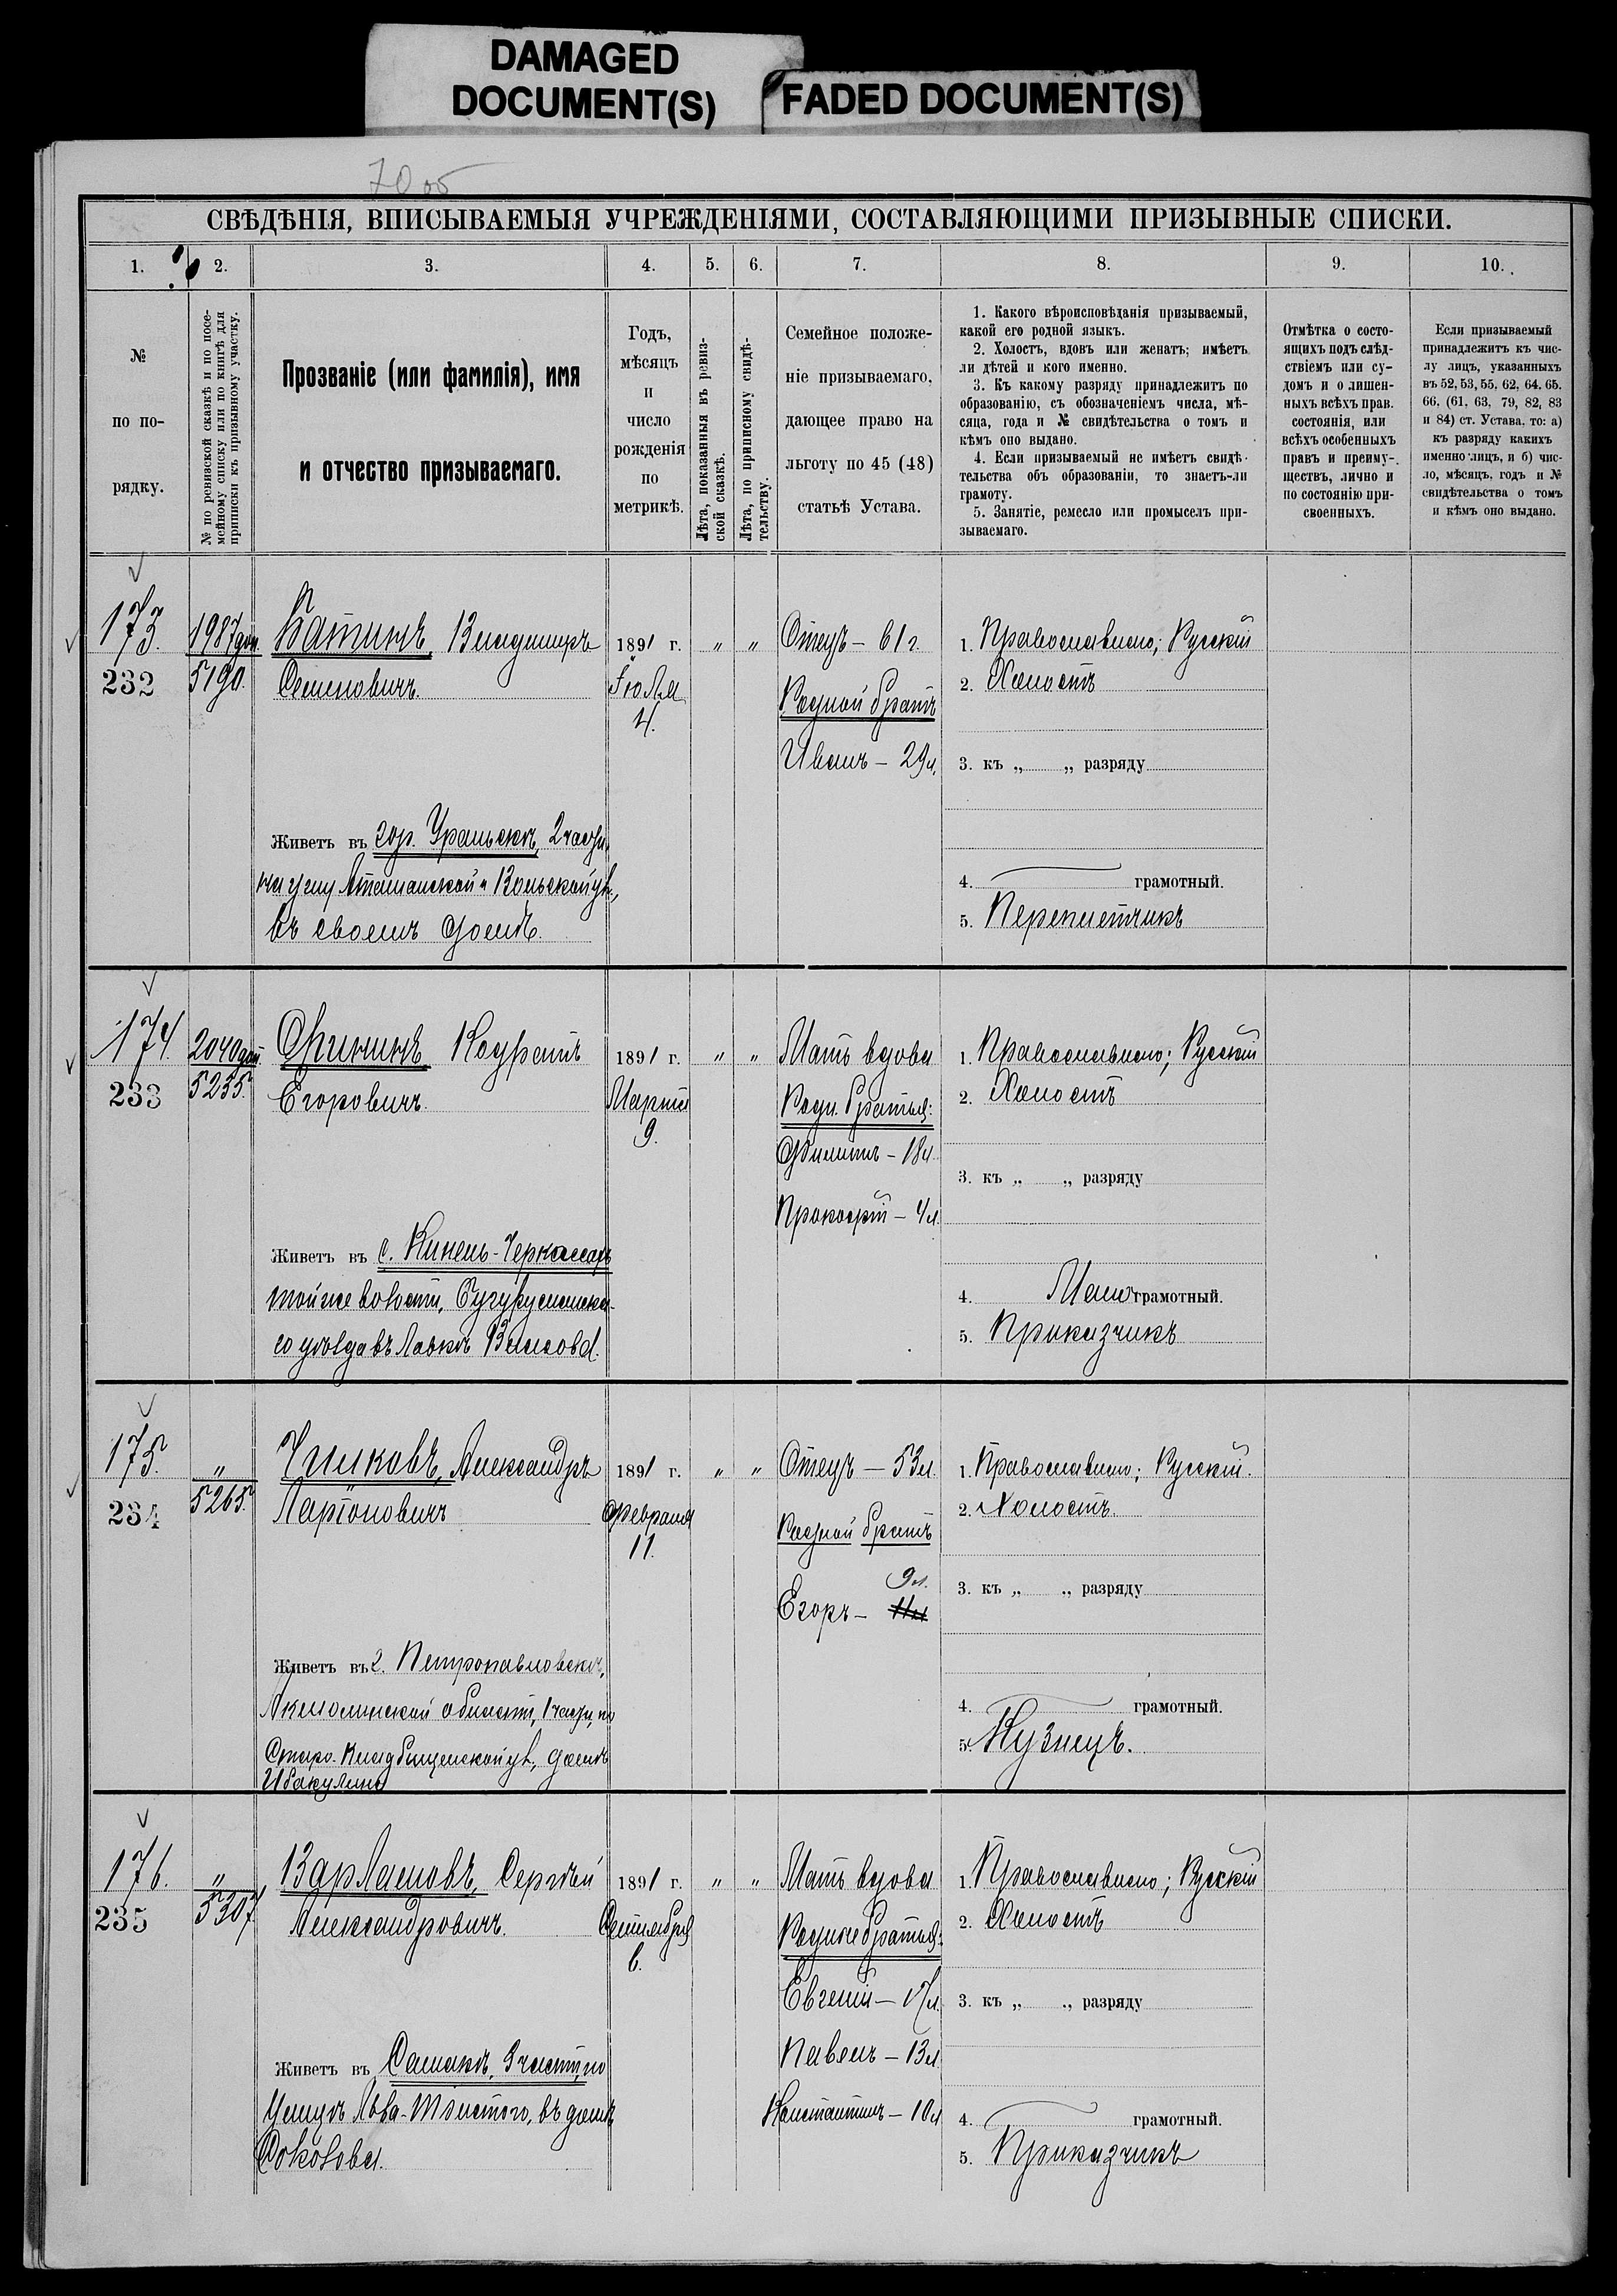 DAMAGED
DOCUMENT(S)
FADED DOCUMENT(S)
70 об
СВѢДѢНІЯ, ВПИСЫВАЕМЫЯ УЧРЕЖДЕНІЯМИ, СОСТАВЛЯЮЩИМИ ПРИЗЫВНЫЕ СПИСКИ.
1. 2. 3. 4. 5. 6. 7. 8. 9. 10.
№
по по-
рядку.
№ по ревизской сказкѣ и по посе-
мейному списку или по книгѣ для
приписки къ призывному участку.
Прозваніе (или фамилія), имя
и отчество призываемаго.
Годъ,
мѣсяцъ
и
число
рожденія
по
метрикѣ.
Лѣта, показанныя въ ревиз-
ской сказкѣ.
Лѣта, по приписному свидѣ-
тельству.
Семейное положе-
ніе призываемаго,
дающее право на
льготу по 45 (48)
статьѣ Устава.
1. Какого вѣроисповѣданія призываемый,
какой его родной языкъ.
2. Холостъ, вдовъ или женатъ; имѣетъ
ли дѣтей и кого именно.
3. Къ какому разряду принадлежитъ по
образованію, съ обозначеніемъ числа, мѣ-
сяца, года и № свидѣтельства о томъ и
кѣмъ оно выдано.
4. Если призываемый не имѣетъ свидѣ-
тельства объ образованіи, то знаетъ-ли
грамоту.
5. Занятіе, ремесло или промыселъ при-
зываемаго.
Отмѣтка о состо-
ящихъ подъ слѣд-
ствіемъ или су-
домъ и о лишен-
ныхъ всѣхъ прав.
состоянія, или
всѣхъ особенныхъ
правъ и преиму-
ществъ, лично и
по состоянію при-
своенныхъ.
Если призываемый
принадлежитъ къ чис-
лу лицъ, указанныхъ
въ 52, 53, 55, 62, 64, 65.
66, (61, 63, 79, 82, 83
и 84) ст. Устава, то: а)
къ разряду какихъ
именно лицъ, и б) чис-
ло, мѣсяцъ, годъ и №
свидѣтельства о томъ
и кѣмъ оно выдано.
173.
232
1987 доп.
5190.
Батинъ, Владимиръ
Семеновичъ.
Живетъ въ гор. Уральскѣ, 2 части,
на углу Атаманской и Вольской ул.,
въ своемъ домѣ.
1891 г.
Іюля
4.
„ „
Отецъ – 61 г.
Родной братъ
Иванъ – 29 л.
1. Православного; Русскій
2. Холостъ
3. къ „ „ разряду
4. грамотный.
5. Переплетчикъ
174.
233
2040 доп.
5235.
Кодратъ
Егоровичъ.
Живетъ въ с. Кинель-Черкассахъ
той же волости, Бугурусланска-
го уѣзда въ лавкѣ
1891 г.
Марта
9.
„ „
Мать вдова
Родн. братья:
Филиппъ – 18 л.
Прокофій – 4 л.
1. Православного; Русскій
2. Холостъ
3. къ „ „ разряду
4. Мало грамотный.
5. Приказчикъ
175.
234
„
5265.
Чилковъ, Александръ
Ларіоновичъ
Живетъ въ г. Петропавловскѣ,
Акмолинской области, 1 части, по
Старо-Кладбищенской ул., домъ
Ибакулина
1891 г.
Февраля
11.
„ „
Отецъ – 53 л.
Родной братъ
9 л.
Егоръ – 11 л.
1. Православного; Русскій.
2. Холостъ.
3. къ „ „ разряду
4. грамотный.
5. Кузнецъ.
176.
235
„
5307.
Варламовъ, Сергѣй
Александровичъ.
Живетъ въ Самарѣ, 3 части, по
улицѣ Льва-Толстого, въ домѣ
Соколова.
1891 г.
Сентября
6.
„ „
Мать вдова
Родные братья:
Евгеній – 17 л.
Павелъ – 13 л.
Константинъ – 10 л.
1. Православного; Русскій
2. Холостъ
3. къ „ „ разряду
4. грамотный.
5. Приказчикъ